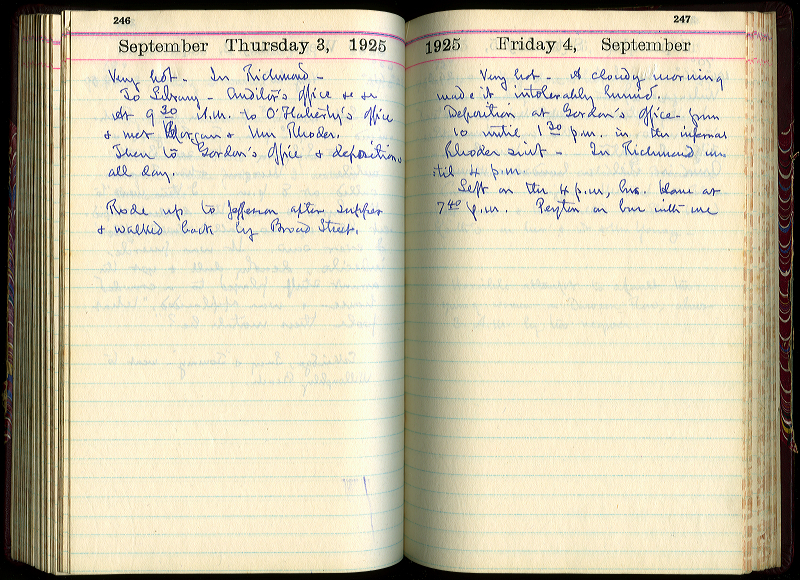 246
September Thursday 3, 1925
Very hot - In Richmond -
To Library - Auditor's office &c &c
At 9 30 A.M. to O'Flaherty's office
& met Morgan & Mrs Rhodes.
Then to Gordon's office & depositions
all day.
Rode up to Jefferson after supper
& walked back by Broad Street.
247
1925 Friday 4, September
Very hot - A cloudy morning
made it intolerably humid.
Deposition at Gordon's office - from
10 until 1 30 p.m. in the infernal
Rhodes suit - In Richmond un-
til 4 p.m.
Left on the 4 p.m. bus. Home at
7 40 p.m. Peyton on bus with me